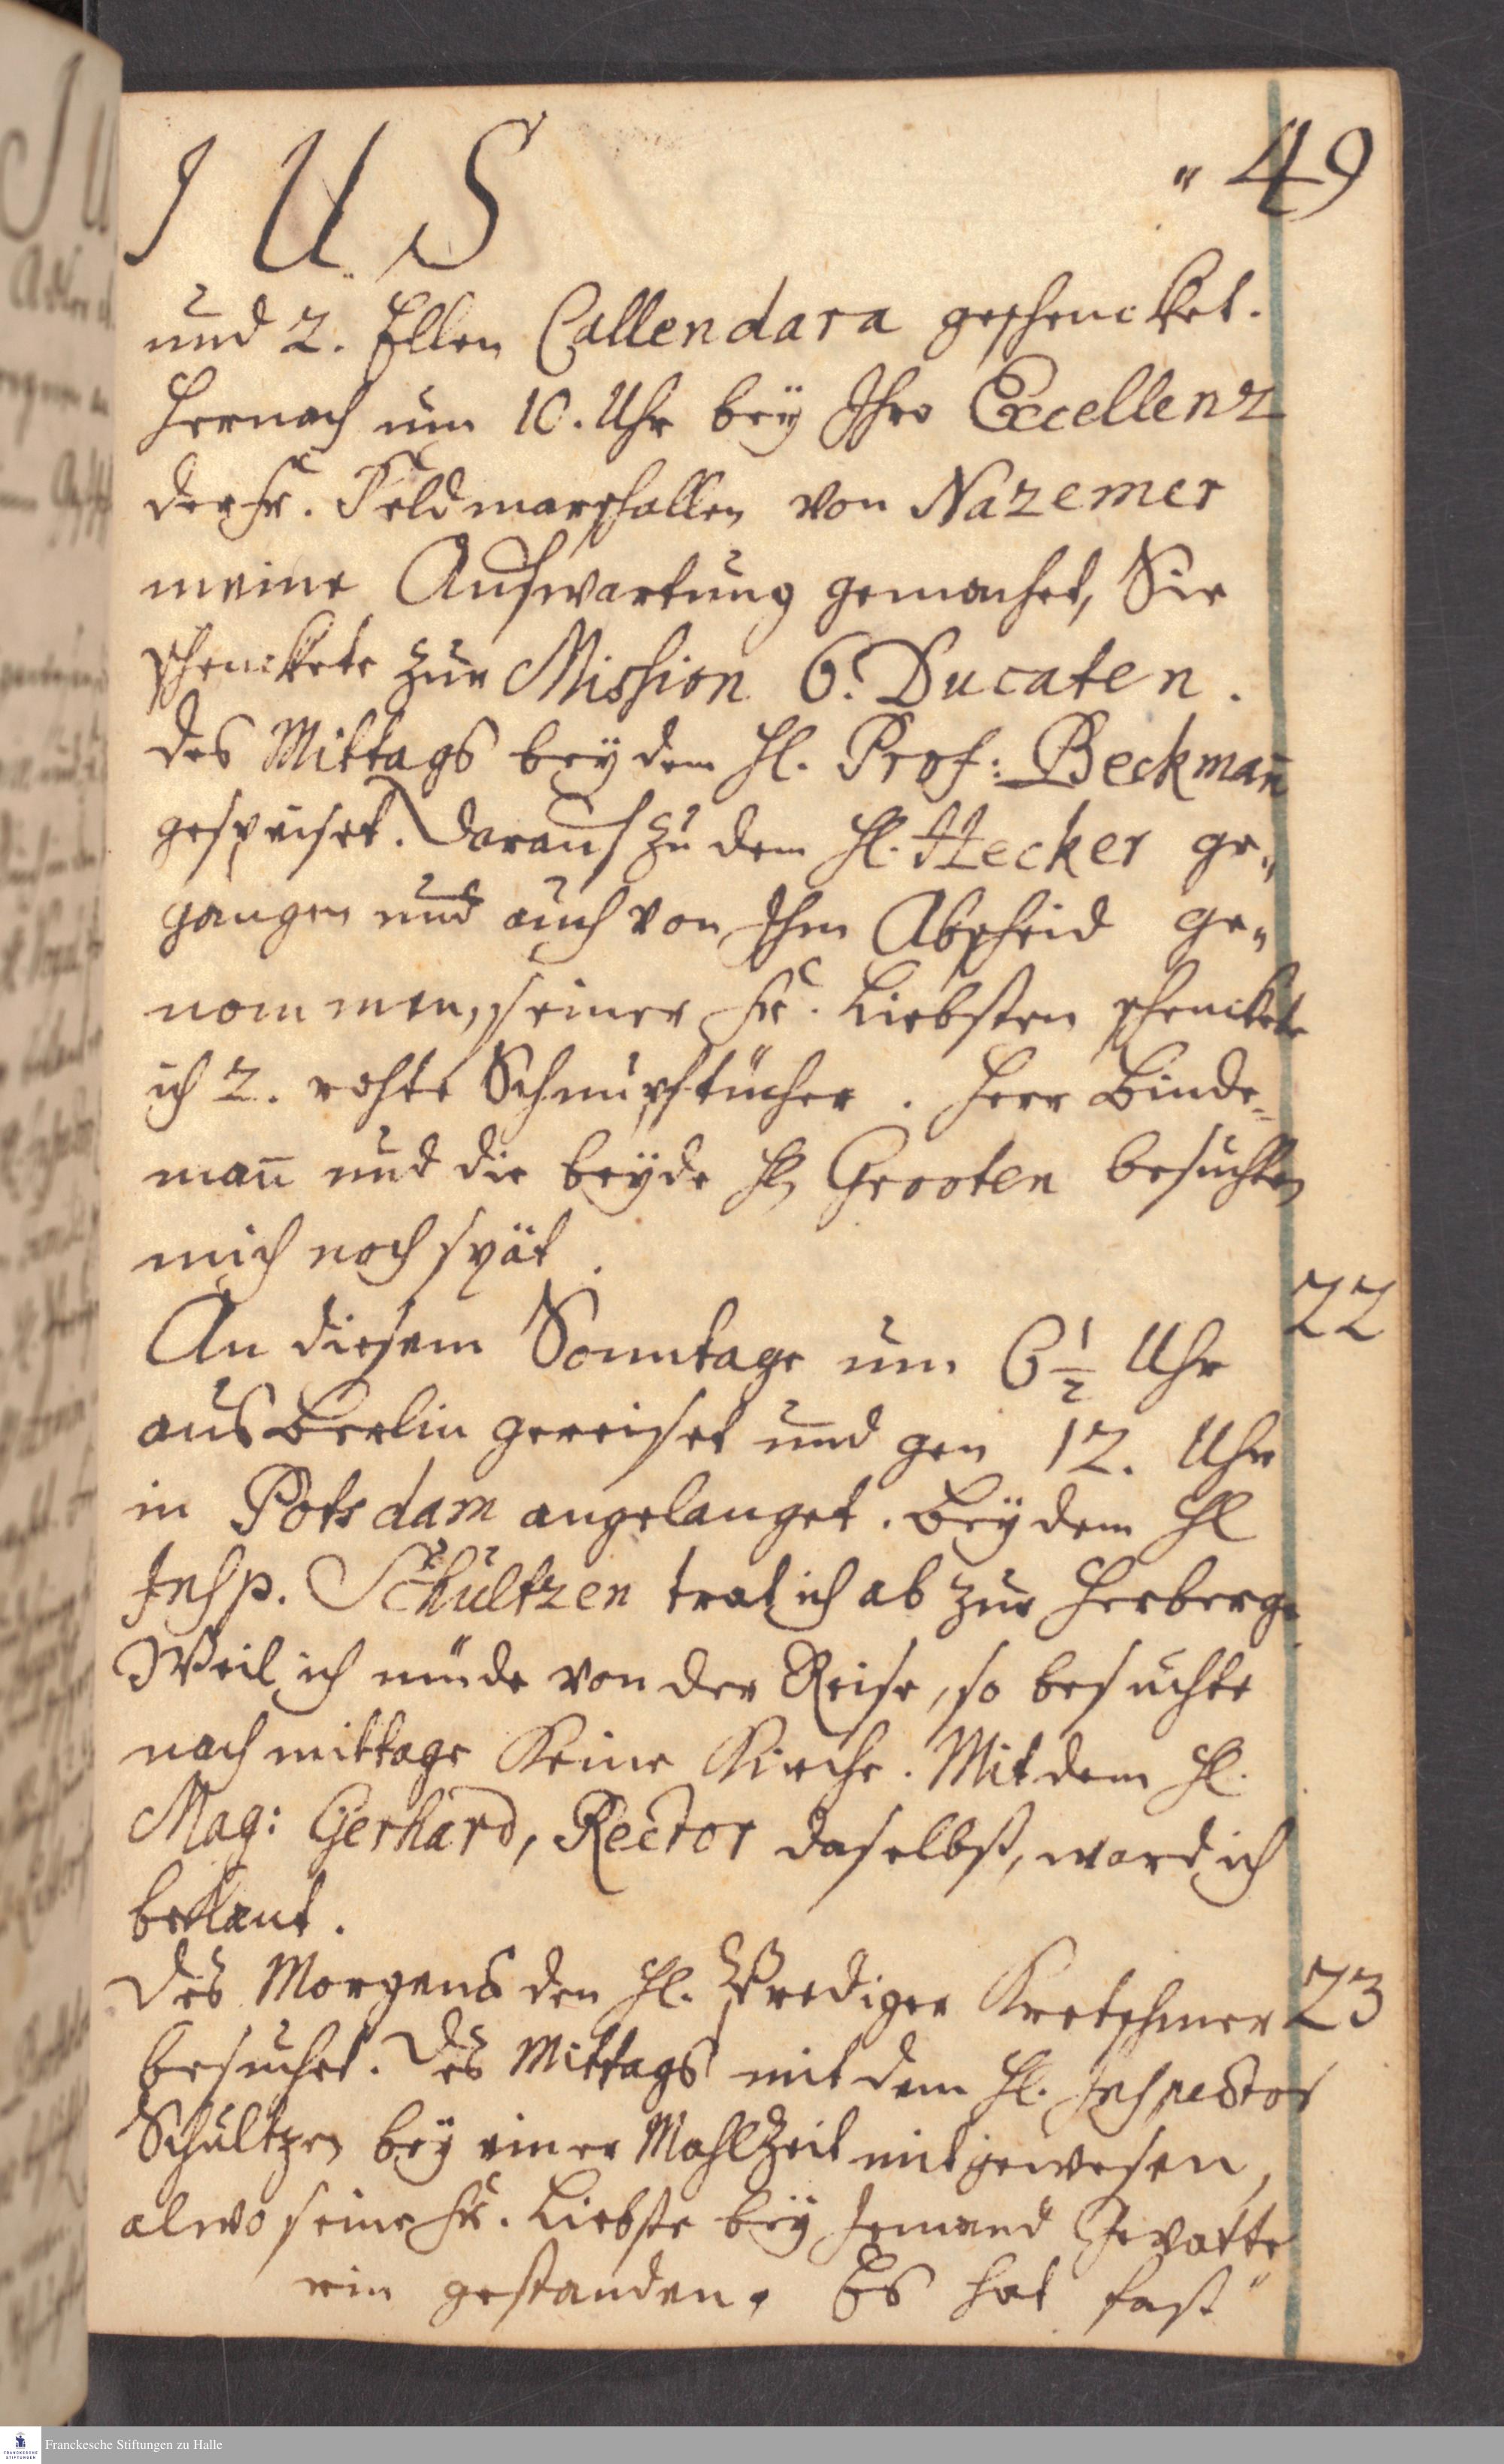 I U S " 49
und 2. Ellen Callendara geschencket.
Hernach um 10. Uhr beÿ Ihro Excellenz
der Fr. Feldmarschallen von Nazemer
meine Aufwartung gemachet, Sie
schenckete zur Mission 6. Ducaten.
des Mittags beÿ dem Hl. Prof: Beckman̄
gespeiset. Darauf zu dem Hl. Hecker ge„
gangen und auch von Ihm Abscheid ge„
nommen, seiner Fr. Liebsten schenckete
ich 2. rohte Schnupftücher. Herr Binde=
man̄ und die beÿde Hl Grooten besuchten
mich noch spät.
An diesem Sonntage um 6 1/2 Uhr 22
aus Berlin gereiset und gen 12. Uhr
in Potsdam angelanget. Beÿ dem Hl
Insp. Schultzen trat ich ab zur Herberge
Weil ich müde von der Reise, so besuchte
nachmittage keine Kirche. Mit dem Hl.
Mag: Gerhard, Rector daselbst, ward ich
bekant.
Des Morgens den Hl. Prediger Kretschmer 23
besuchet. Des Mittags mit dem Hl. Inspector
Schultzen beÿ einer Mahlzeit mit gewesen,
alwo seine Fr. Liebste beÿ Jemand Gevatte
rin gestanden. Es hat fast
Franckesche Stiftungen zu Halle